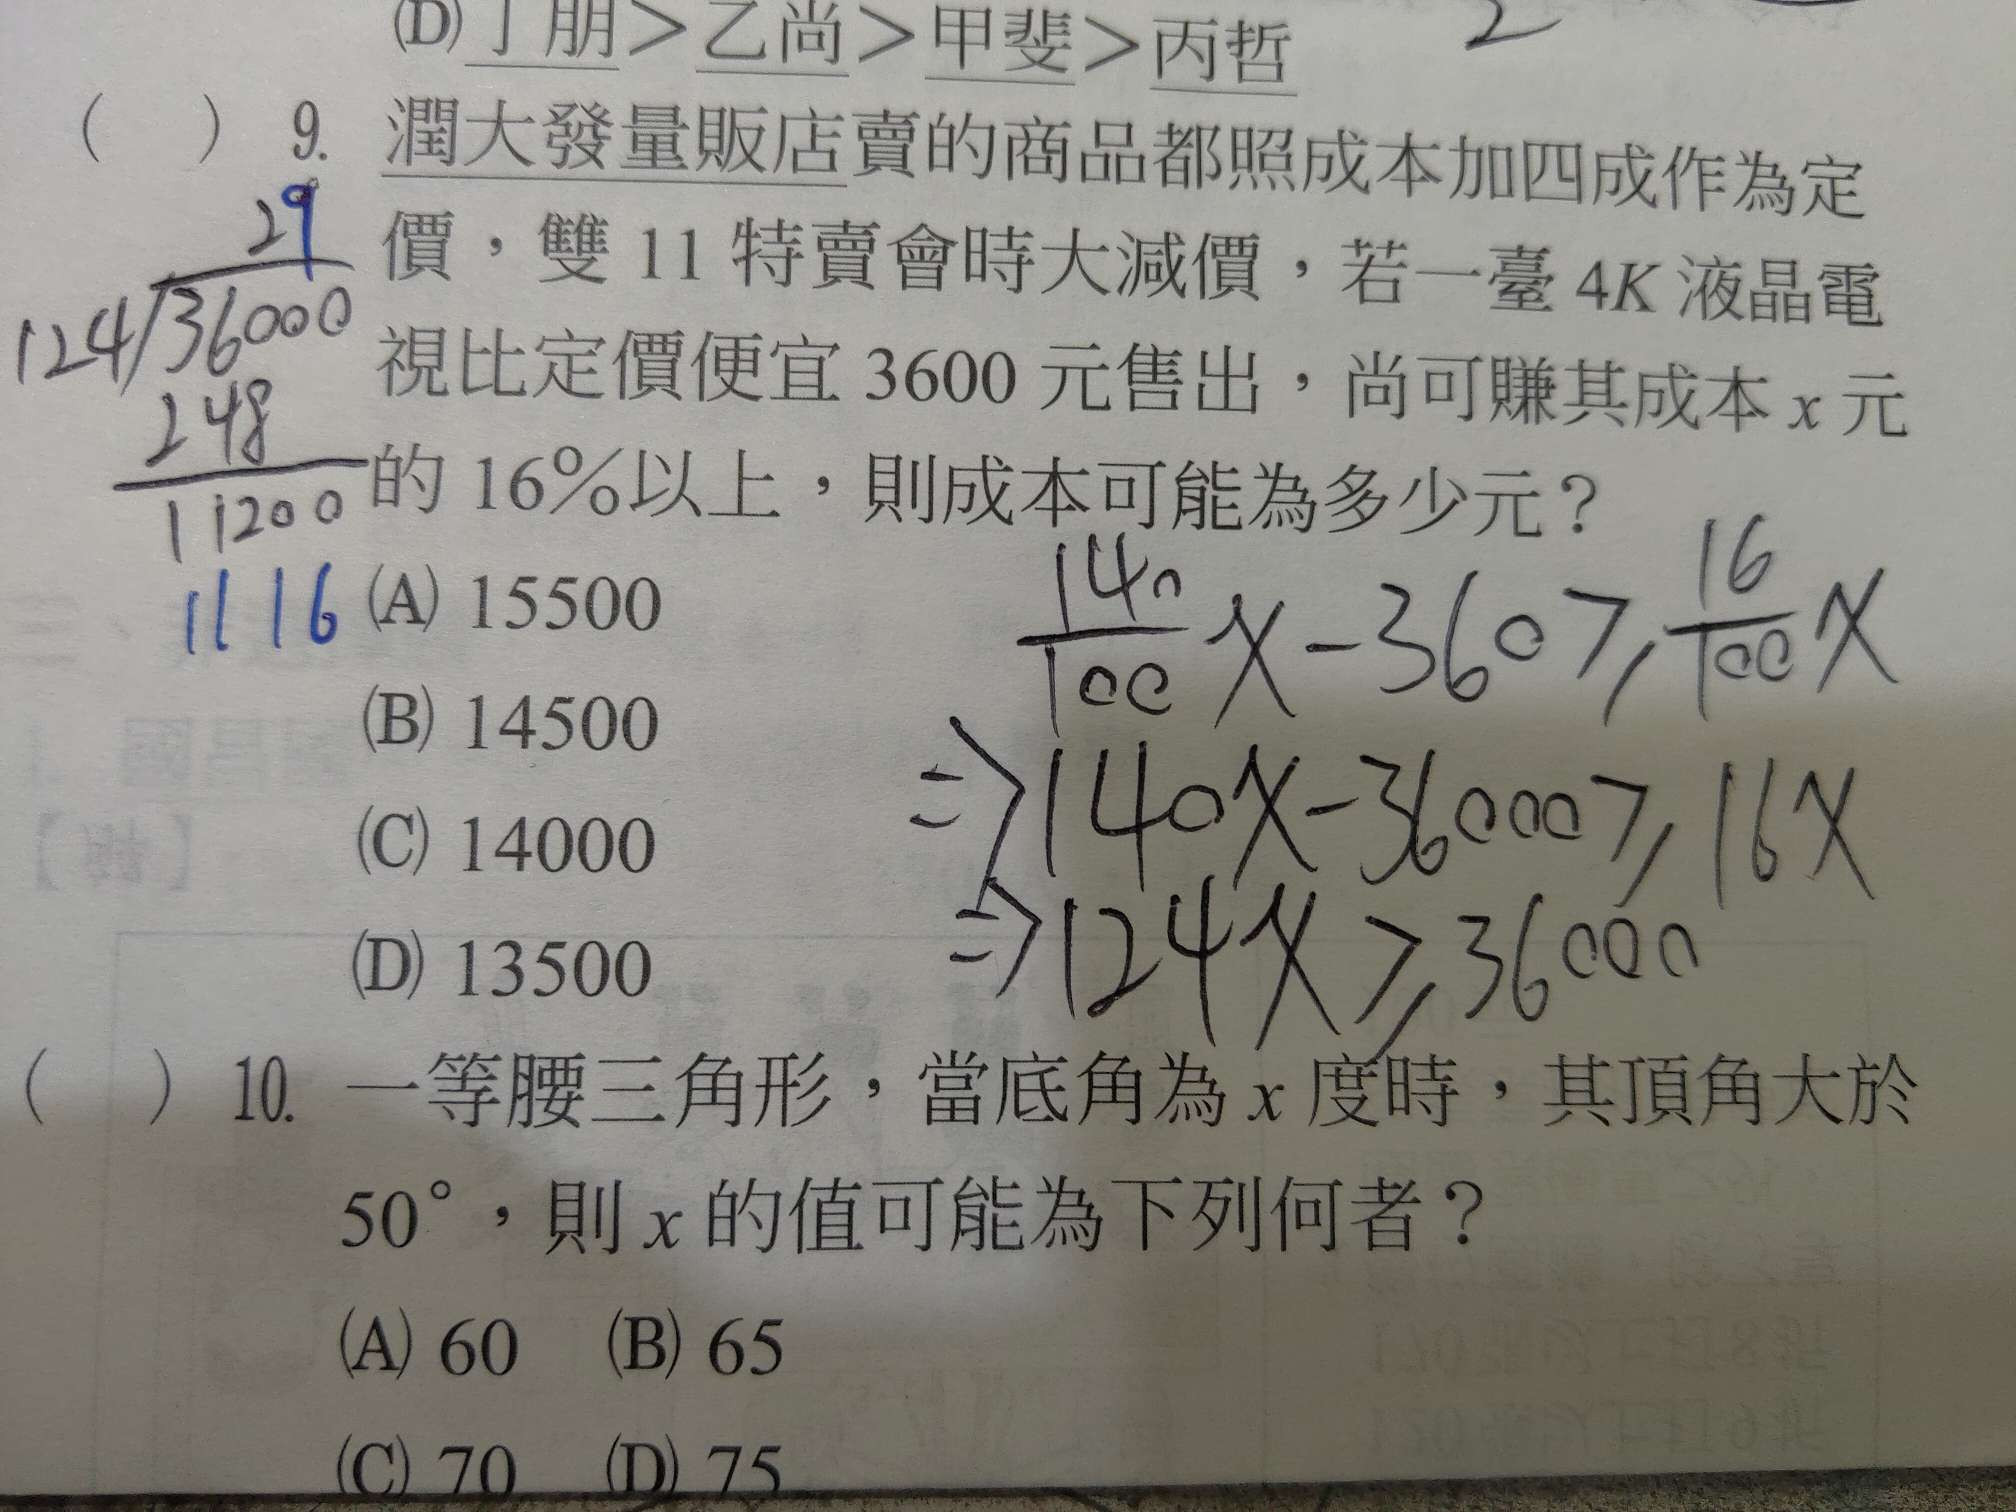 (D)丁朋＞乙尚＞甲斐＞丙哲
2
(　) 9. 潤大發量販店賣的商品都照成本加四成作為定
價，雙 11 特賣會時大減價，若一臺 4K 液晶電
視比定價便宜 3600 元售出，尚可賺其成本 x 元
的 16%以上，則成本可能為多少元？
(A) 15500
(B) 14500
(C) 14000
(D) 13500
29
124/36000
248
11200
1116
140/100 x-360≥16/100 x
⇒140x-36000≥16x
⇒124x≥36000
(　) 10. 一等腰三角形，當底角為 x 度時，其頂角大於
50°，則 x 的值可能為下列何者？
(A) 60　(B) 65
(C) 70　(D) 75